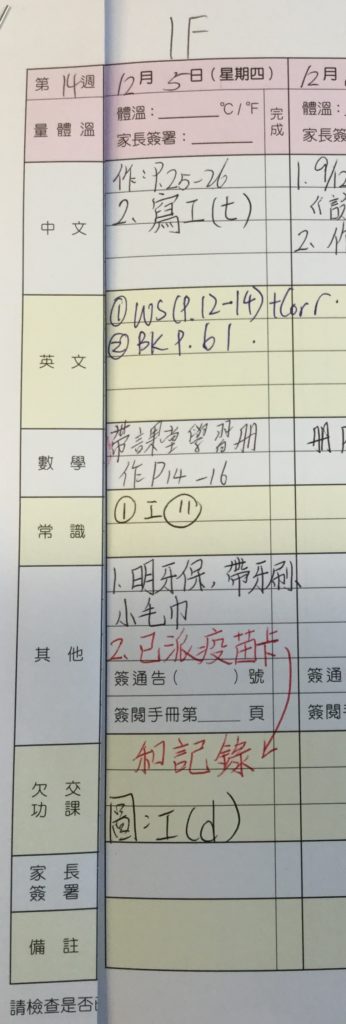 1F
第14週 12月5日(星期四) 12月
量體溫 體溫：______℃/℉ 完成 體溫：
家長簽署：______ 家長簽
中文 作：P.25-26 1. 9/12
2. 寫工(七)
2. 作
英文 ① WS(P.12-14)+Corr.
② BK P.61.
數學 帶課堂學習冊 冊
作P14-16
常識 ① 工⑪
其他 1. 明牙保，帶牙刷、
小毛巾
2. 已派疫苗卡
和記錄
簽通告( )號 簽通
簽閱手冊第____頁 簽閱手
欠交功課
圖：工(d)
家長簽署
備註
請檢查是否